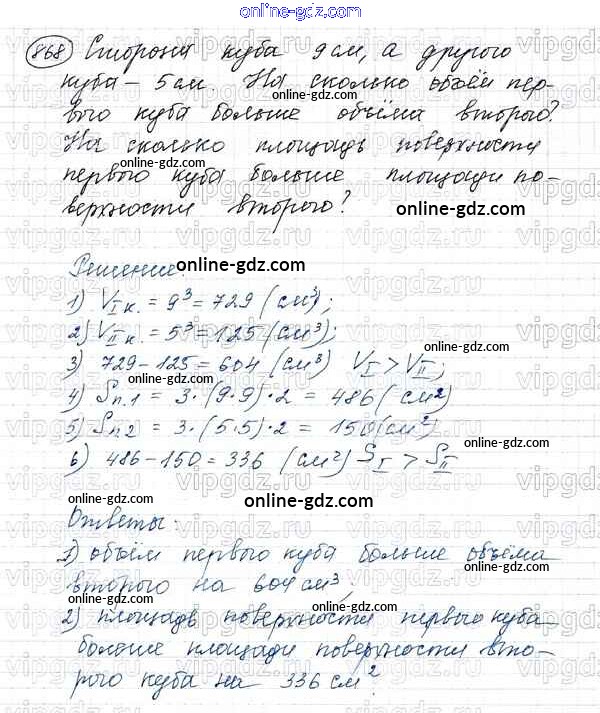 online-gdz.com
868 Сторона куба 9 см, а другого
куба – 5 см. На сколько объём пер-
вого куба больше объёма второго?
На сколько площадь поверхности
online-gdz.com
первого куба больше площади по-
верхности второго? online-gdz.com
Решение: online-gdz.com
1) V I к. = 9³ = 729 (см³);
2) V II к. = 5³ = 125 (см³);
online-gdz.com
3) 729 – 125 = 604 (см³) V I > V II;
online-gdz.com
4) Sп.1 = 3 · (9·9) · 2 = 486 (см²)
5) Sп.2 = 3 · (5·5) · 2 = 150 (см²)
online-gdz.com
6) 486 – 150 = 336 (см²) S I > S II
online-gdz.com
online-gdz.com
Ответы:
online-gdz.com
1) объём первого куба больше объёма
второго на 604 см³,
online-gdz.com
2) площадь поверхности первого куба
больше площади поверхности вто-
online-gdz.com
рого куба на 336 см².
online-gdz.com
vipgdz.ru